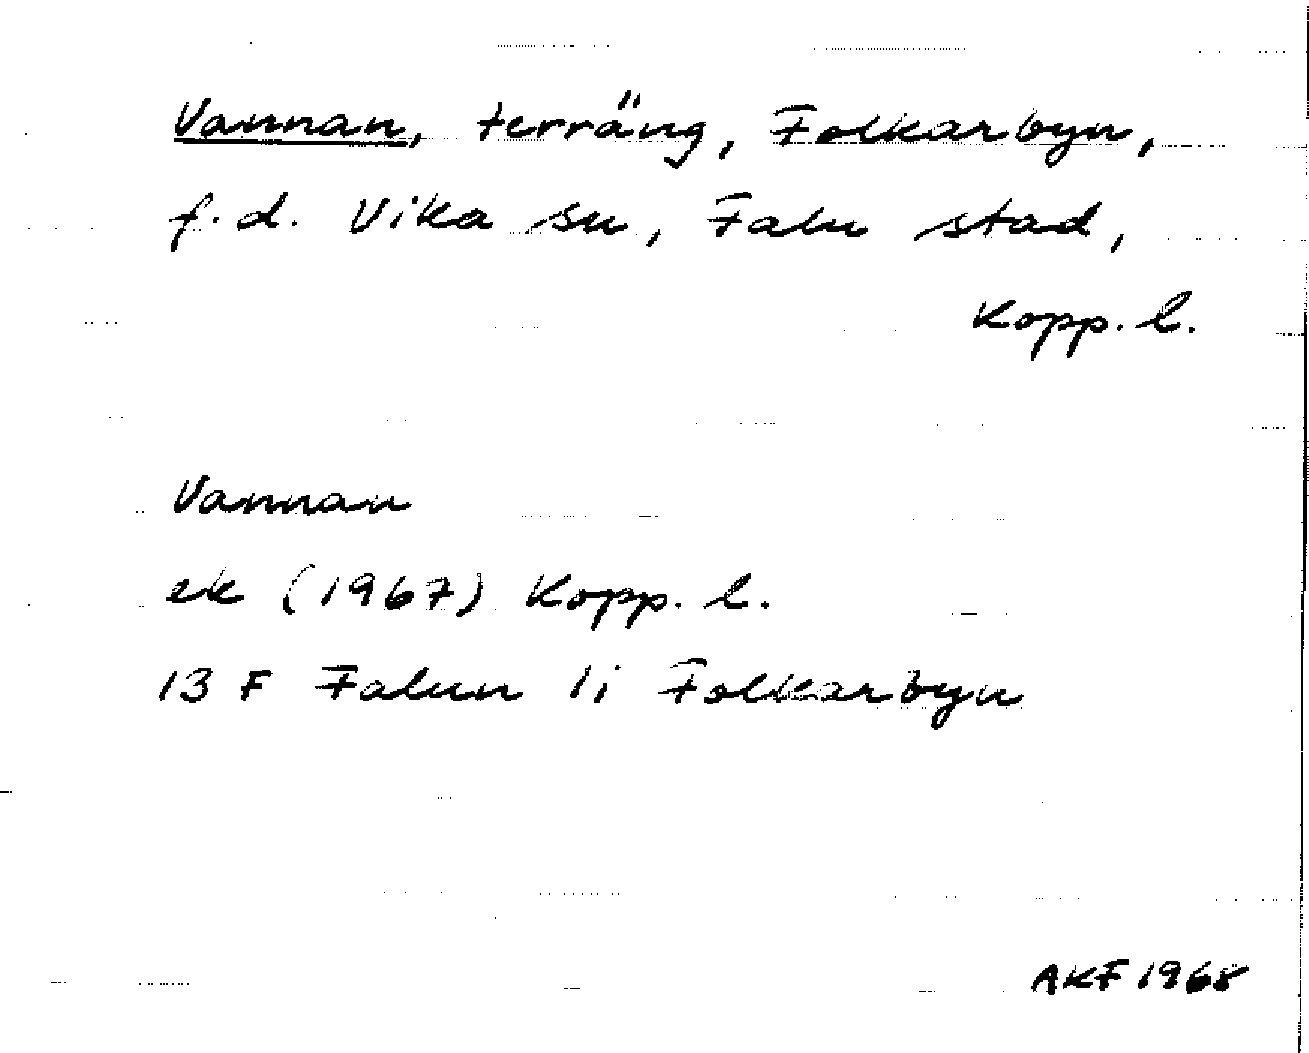 Vannan, terräng, Folkarbyn,
f.d. Vika sn, Falu stad,
Kopp. l.
Vannan
ek (1967) Kopp. l.
13 F Falun 1i Folkarbyn
AKF 1968